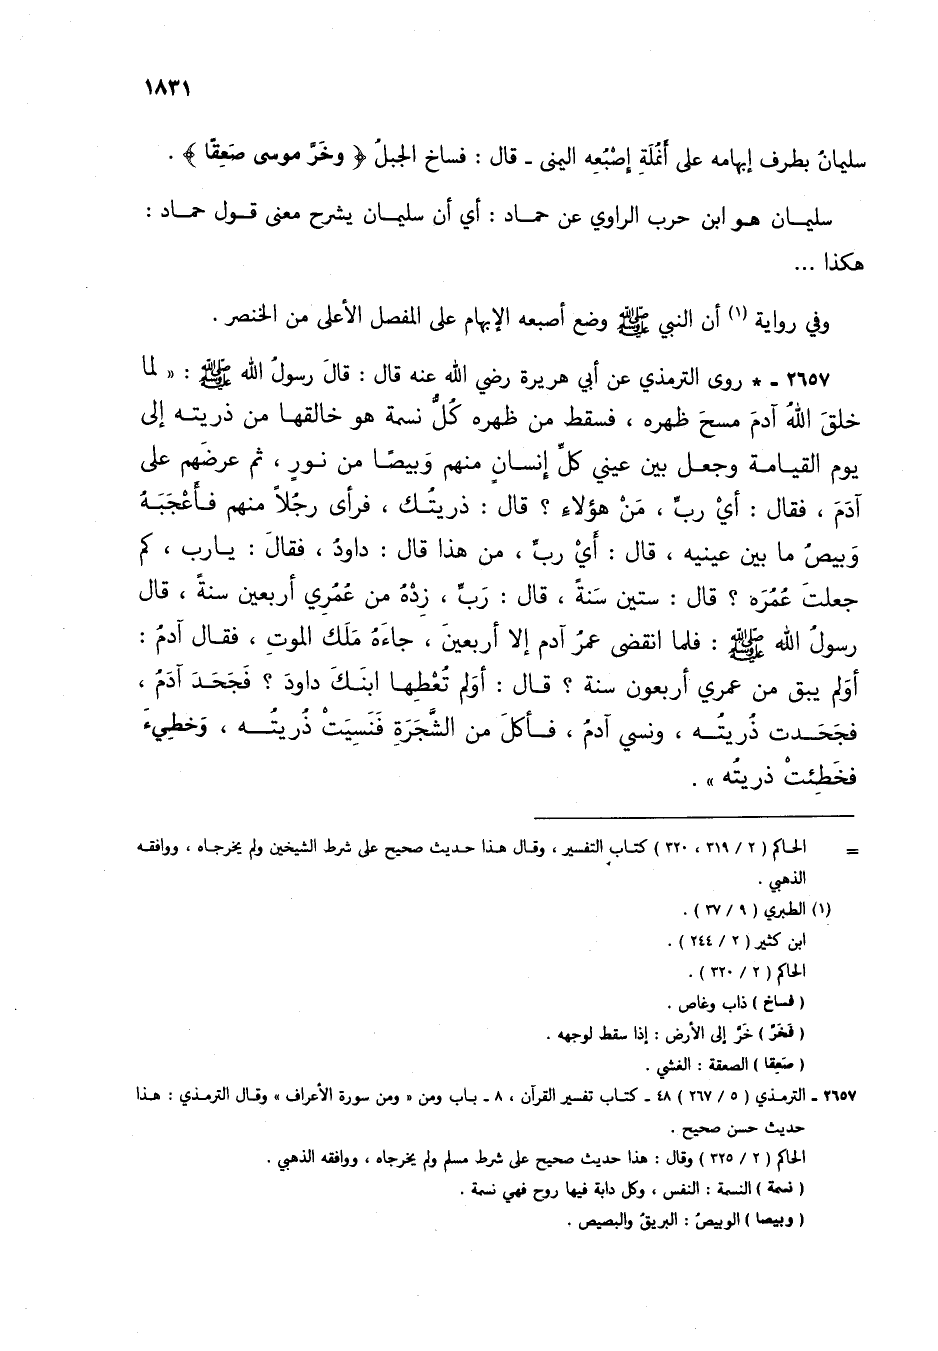 ١٨٣١
سليمانُ بطرف إبهامه على أَنْمُلَةِ إِصْبُعِه اليمنى ـ قال : فساخ الجبلُ ﴿ وخَرَّ موسى صَعِقًا ﴾ .
سليمان هو ابن حرب الراوي عن حماد : أي أن سليمان يشرح معنى قول حماد :
هكذا ...
وفي رواية (١) أن النبي ﷺ وضع أصبعه الإبهام على المفصل الأعلى من الخنصر .
٢٦٥٧ ـ * روى الترمذي عن أبي هريرة رضي الله عنه قال : قالَ رسولُ الله ﷺ : « لما
خلقَ اللهُ آدمَ مسحَ ظهره ، فسقط من ظهره كُلُّ نسمة هو خالقها من ذريته إلى
يوم القيامة وجعل بين عيني كلِّ إنسانٍ منهم وَبيصًا من نورٍ ، ثم عرضَهم على
آدَمَ ، فقال : أيْ ربِّ ، مَنْ هؤلاءِ ؟ قال : ذريتُك ، فرأى رجُلاً منهم فأَعْجَبَهُ
وَبيصُ ما بين عينيه ، قال : أَيْ ربِّ ، من هذا قال : داودُ ، فقالَ : يارب ، كم
جعلتَ عُمُرَه ؟ قال : ستين سَنةً ، قال : رَبِّ ، زِدْهُ من عُمُرِي أربعين سنةً ، قال
رسولُ الله ﷺ : فلما انقضى عمرُ آدم إلا أربعينَ ، جاءَهُ مَلَك الموتِ ، فقال آدمُ :
أوَلم يبق من عمري أربعون سنة ؟ قال : أوَلم تُعْطِها ابنَكَ داودَ ؟ فَجَحَدَ آدَمُ ،
فجَحَدت ذُريتُه ، ونسي آدمُ ، فأكلَ من الشَّجَرَةِ فَنَسِيَتْ ذُريتُه ، وَخطِيءَ
فخَطِئتْ ذريتُه » .
= الحاكم ( ٢ / ٣١٩ ، ٣٢٠ ) كتاب التفسير ، وقال هذا حديث صحيح على شرط الشيخين ولم يخرجاه ، ووافقه
الذهبي .
(١) الطبري ( ٩ / ٣٧ ) .
ابن كثير ( ٢ / ٢٤٤ ) .
الحاكم ( ٢ / ٣٢٠ ) .
( فساخ ) ذاب وغاص .
( فَخَرَّ ) خَرَّ إلى الأرض : إذا سقط لوجهه .
( صَعِقا ) الصعقة : الغشي .
٢٦٥٧ ـ الترمذي ( ٥ / ٢٦٧ ) ٤٨ ـ كتاب تفسير القرآن ، ٨ ـ باب ومن « ومن سورة الأعراف » وقال الترمذي : هذا
حديث حسن صحيح .
الحاكم ( ٢ / ٣٢٥ ) وقال : هذا حديث صحيح على شرط مسلم ولم يخرجاه ، ووافقه الذهبي .
( نسمة ) النسمة : النفس ، وكل دابة فيها روح فهي نسمة .
( وبيصا ) الوبيصُ : البريقُ والبصيص .